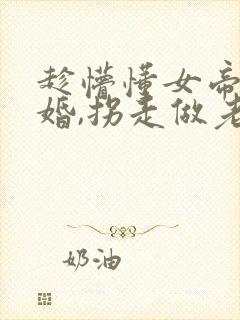 趁懵懂女帝
婚,拐走做老
奶油